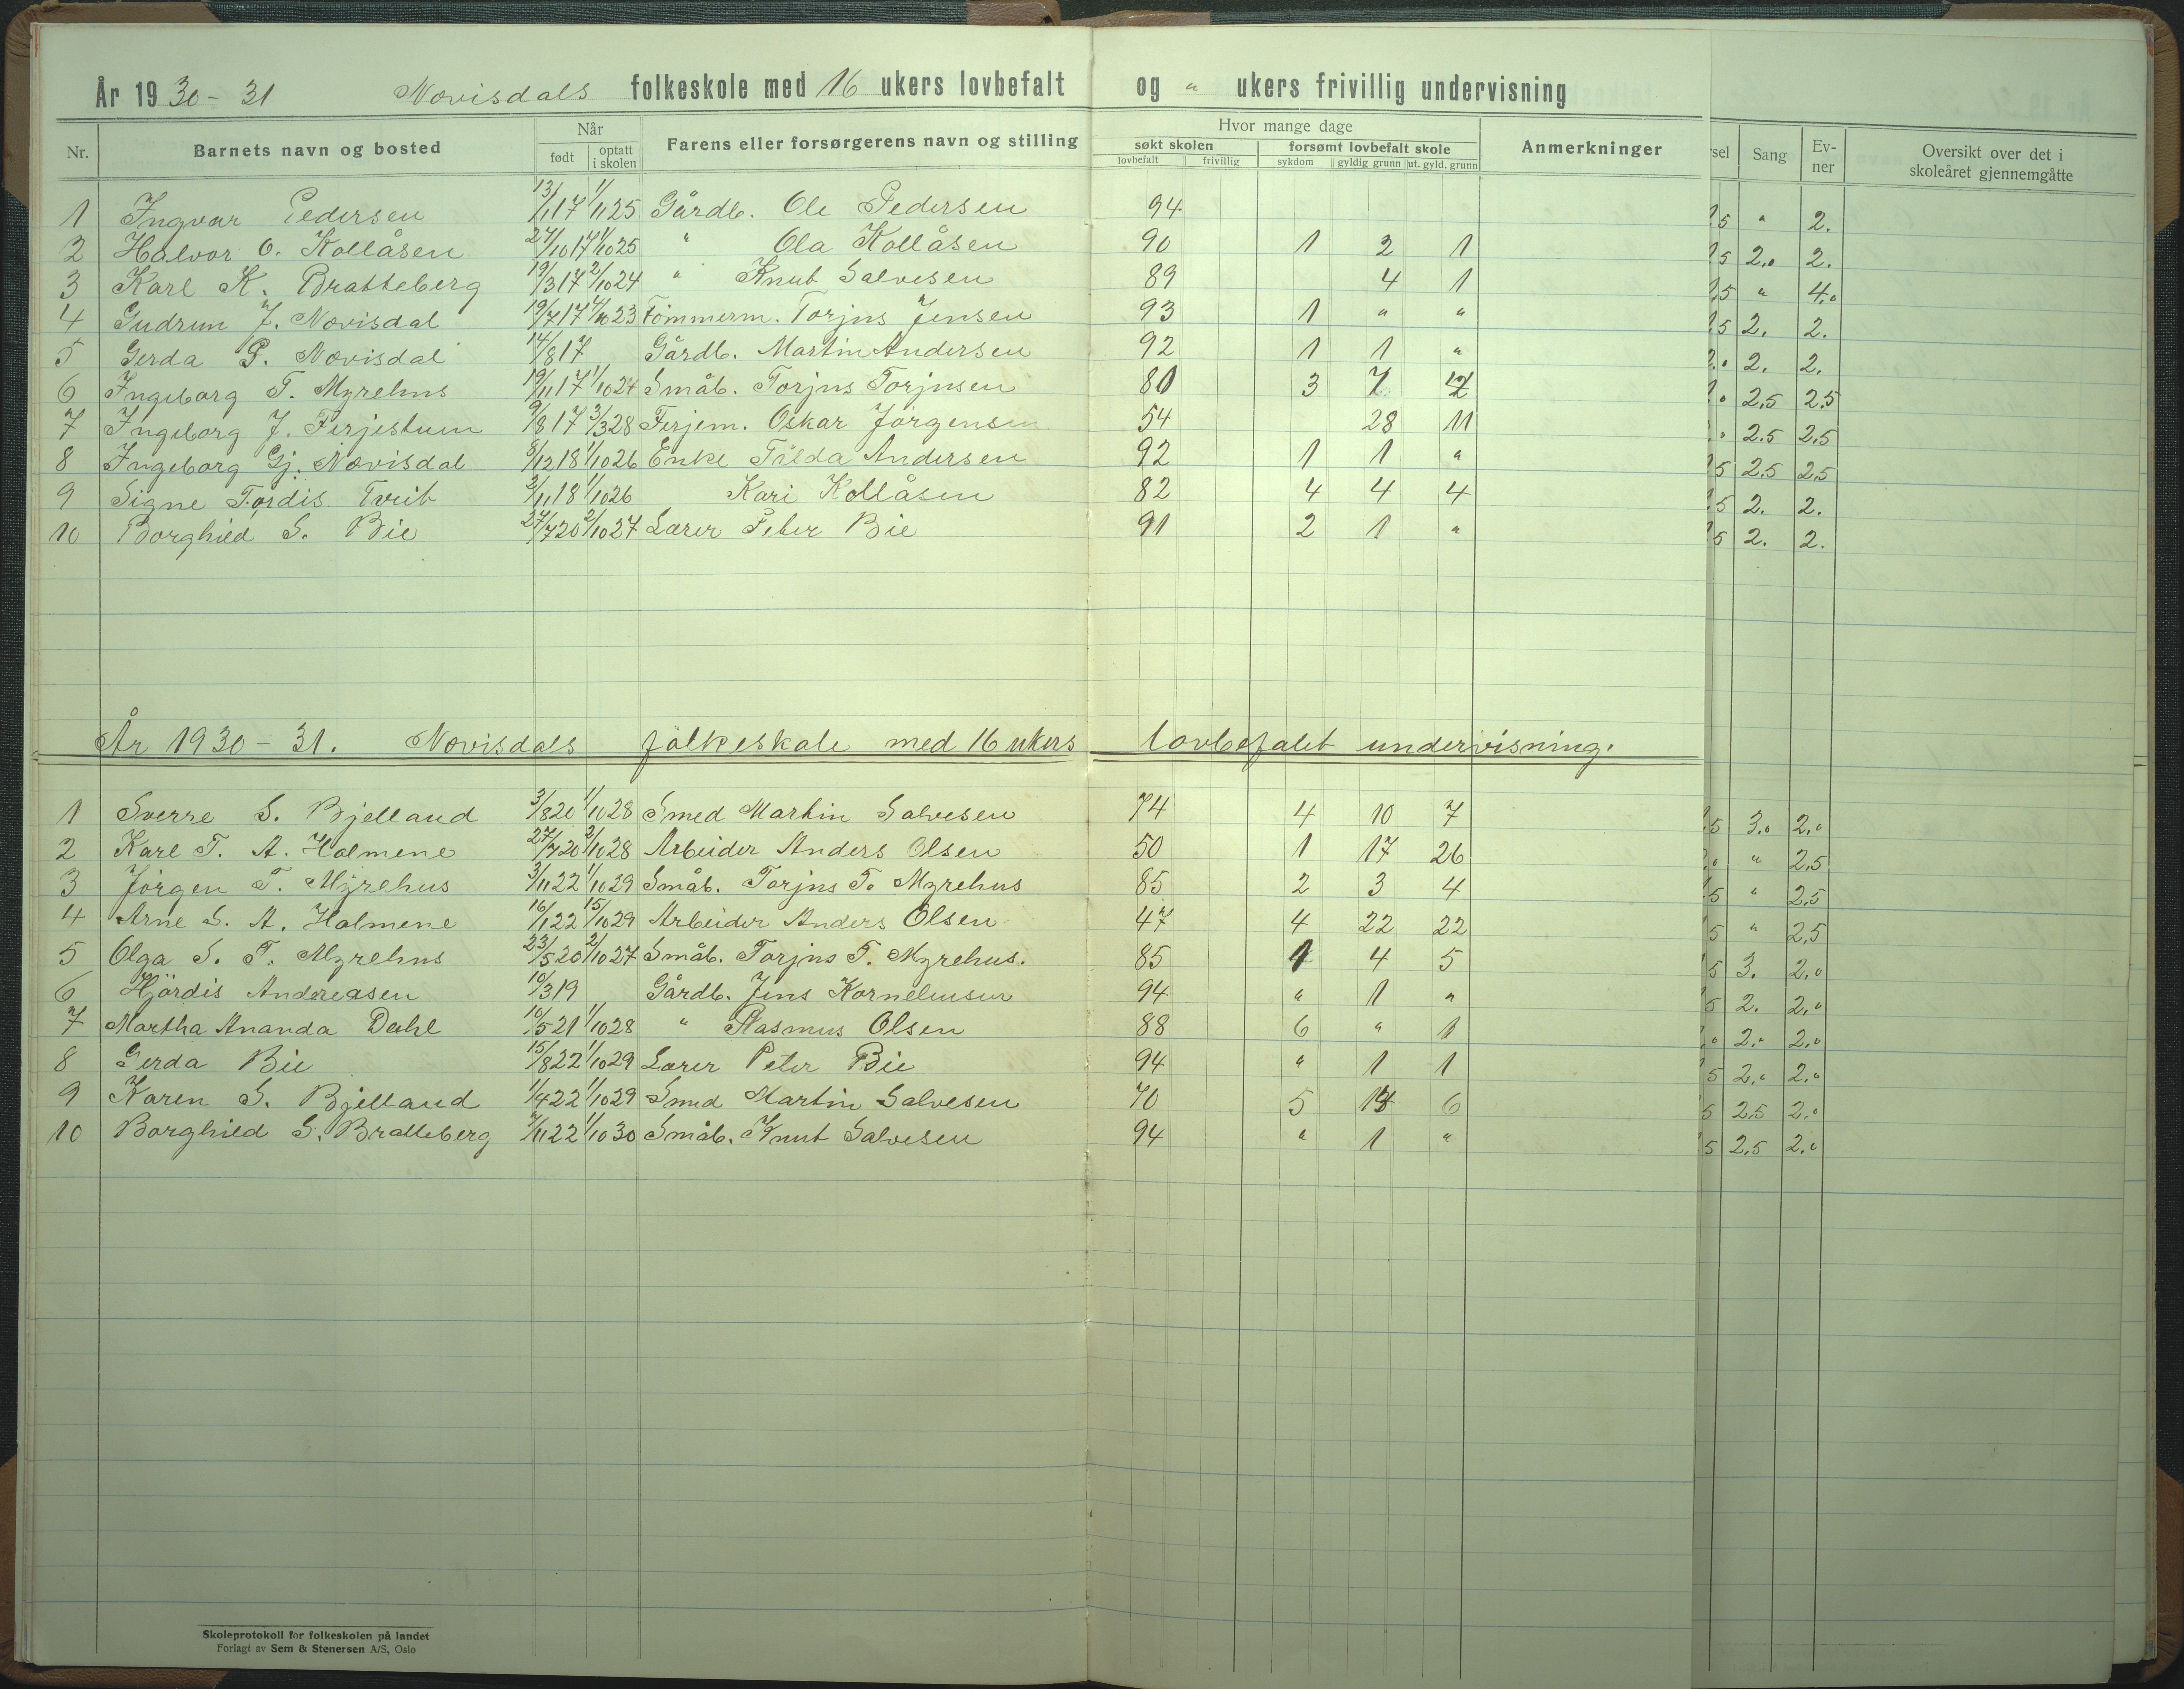 År 1930-31 Nævisdals folkeskole med 16 ukers lovbefalt og " ukers frivillig undervisning
Nr. Barnets navn og bosted Når Farens eller forsørgerens navn og stilling Hvor mange dage Anmerkninger
født optatt i skolen søkt skolen forsømt lovbefalt skole
lovbefalt frivillig sykdom gyldig grunn ut. gyld. grunn
rsel Sang Ev-ner Oversikt over det i skoleåret gjennemgåtte
1 Ingvar Pedersen 13/1 17 1/1 25 Gårdb. Ole Pedersen 94 5 " 2.
2 Halvor O. Kollåsen 24/10 17 1/10 25 " Ola Kollåsen 90 1 2 1 5 2.0 2.
3 Karl K. Bratteberg 19/3 17 2/10 24 " Knut Salvesen 89 4 1 5 " 4.0
4 Gudrun J. Nævisdal 19/7 17 4/10 23 Tömmerm. Torjus Jensen 93 1 " " 5 2. 2.
5 Gerda P. Nævisdal 14/8 17 Gårdb. Martin Andersen 92 1 1 " 2. 2.
6 Ingeborg T. Myrehus 19/11 17 1/10 24 Småb. Torjus Torjusen 80 3 7 2,5 2,5
7 Ingeborg J. Ferjestuen 9/8 17 3/3 28 Ferjem. Oskar Jörgensen 54 28 11 2.5 2,5
8 Ingeborg Gj. Nævisdal 8/12 18 1/10 26 Enke Tilda Andersen 92 1 1 " 5 2.5 2,5
9 Signe Tordis Tveit 2/11 18 1/10 26 Kari Kollåsen 82 4 4 4 5 2. 2.
10 Borghild S. Bie 27/7 20 2/10 27 Lærer Peter Bie 91 2 1 " 5 2. 2.
År 1930-31. Nævisdals folkeskole med 16 ukers lovbefalet undervisning.
1 Sverre S. Bjelland 3/8 20 1/10 28 Smed Martin Salvesen 74 4 10 7 5 3.0 2.0
2 Karl T. A. Holmene 27/7 20 2/10 28 Arbeider Anders Olsen 50 1 17 26 " 2,5
3 Jörgen T. Myrehus 3/11 22 1/10 29 Småb. Torjus T. Myrehus 85 2 3 4 5 " 2,5
4 Arne S. A. Holmene 16/1 22 15/10 29 Arbeider Anders Olsen 47 4 22 22 5 " 2,5
5 Olga S. T. Myrehus 23/5 20 2/10 27 Småb. Torjus T. Myrehus. 85 1 4 5 5 3. 2.0
6 Hjördis Andreasen 10/3 19 Gårdb. Jens Korneliusen 94 " 1 " 5 2. 2.0
7 Martha Ananda Dahl 16/5 21 1/10 28 " Rasmus Olsen 88 6 " 1 2.0 2.0
8 Gerda Bie 15/8 22 1/10 29 Lærer Peter Bie 94 " 1 1 5 2.0 2.0
9 Karen S. Bjelland 1/4 22 1/10 29 Smed Martin Salvesen 70 5 6 5 2,5 2.0
10 Borghild S. Bratteberg 7/11 22 1/10 30 Småb. Knut Salvesen 94 " 1 " 5 2,5 2.0
Skoleprotokoll for folkeskolen på landet
Forlagt av Sem & Stenersen A/S, Oslo